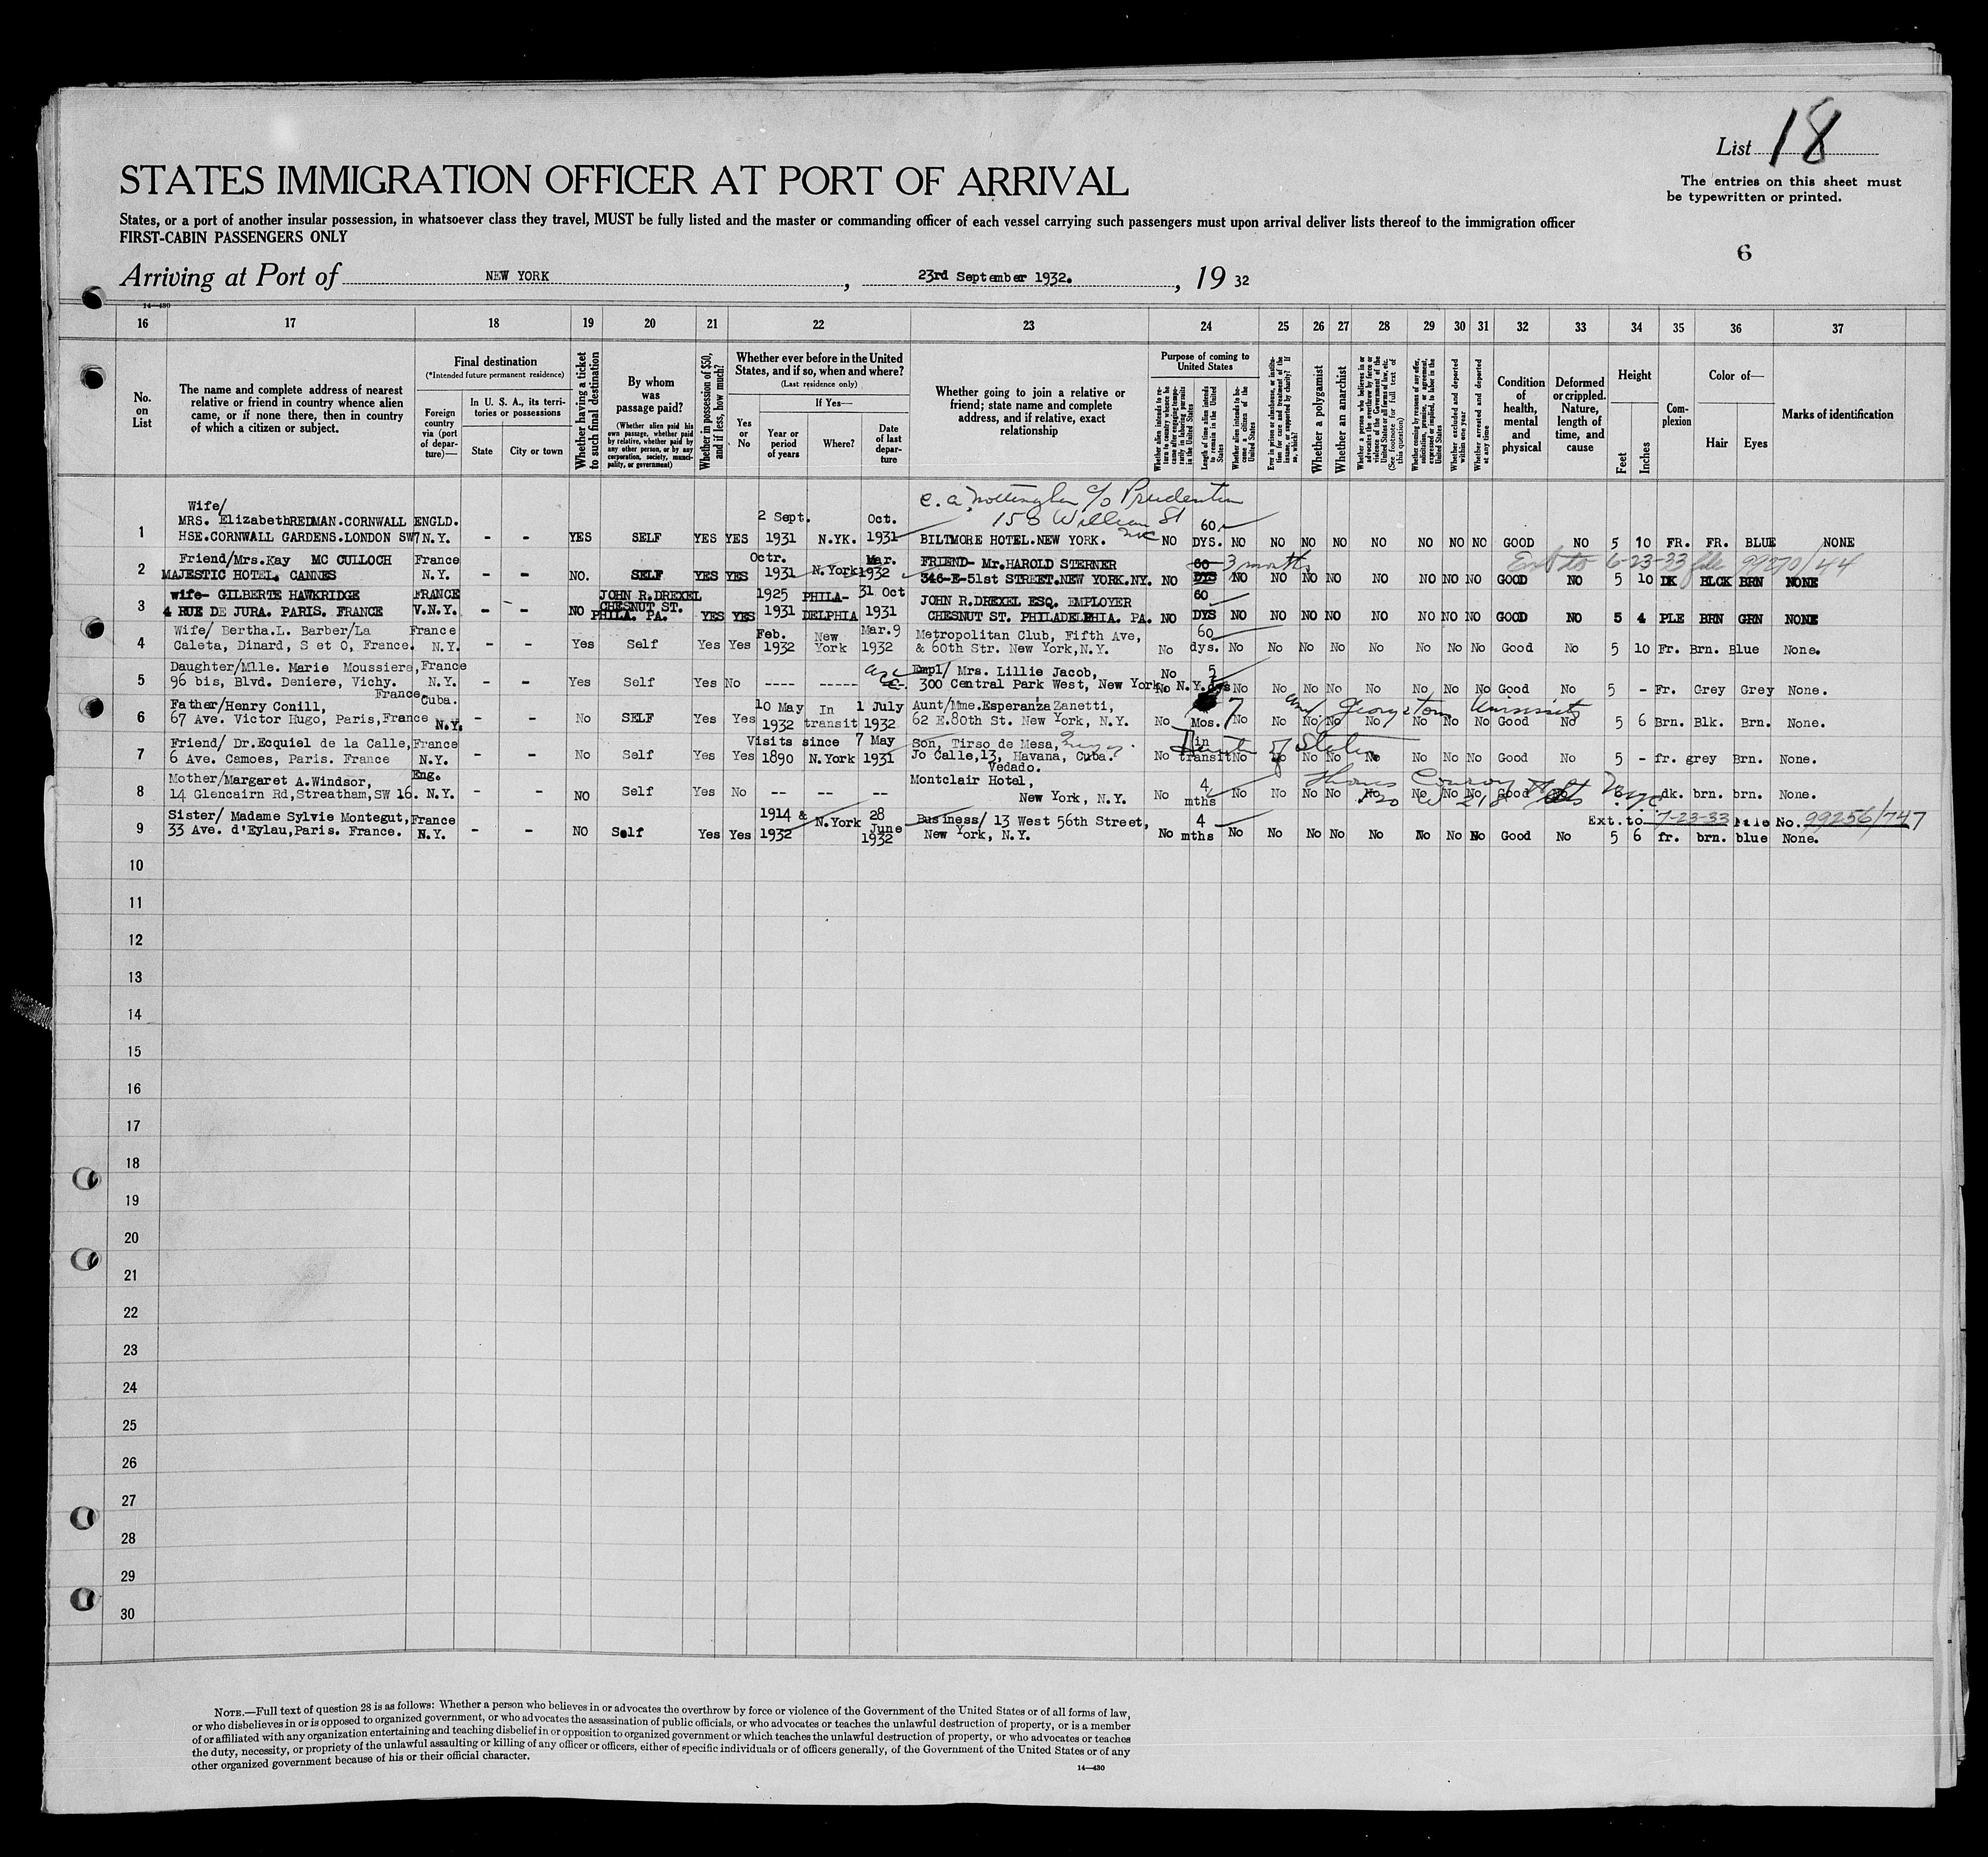 List 18
STATES IMMIGRATION OFFICER AT PORT OF ARRIVAL
The entries on this sheet must
be typewritten or printed.
States, or a port of another insular possession, in whatsoever class they travel, MUST be fully listed and the master or commanding officer of each vessel carrying such passengers must upon arrival deliver lists thereof to the immigration officer
FIRST-CABIN PASSENGERS ONLY
6
Arriving at Port of NEW YORK, 23rd September 1932., 19 32
14—430
16 17 18 19 20 21 22 23 24 25 26 27 28 29 30 31 32 33 34 35 36 37
No. on List
The name and complete address of nearest relative or friend in country whence alien came, or if none there, then in country of which a citizen or subject.
Final destination
(*Intended future permanent residence)
Foreign country via (port of departure)—
In U. S. A., its territories or possessions
State
City or town
Whether having a ticket to such final destination
By whom was passage paid?
(Whether alien paid his own passage, whether paid by relative, whether paid by any other person, or by any corporation, society, municipality, or government)
Whether in possession of $50, and if less, how much?
Whether ever before in the United States, and if so, when and where?
(Last residence only)
Yes or No
If Yes—
Year or period of years
Where?
Date of last departure
Whether going to join a relative or friend; state name and complete address, and if relative, exact relationship
Purpose of coming to United States
Whether alien intends to return to country whence he came after engaging temporarily in laboring pursuits in the United States
Length of time alien intends to remain in the United States
Whether alien intends to become a citizen of the United States
Ever in prison or almshouse, or institution for care and treatment of the insane, or supported by charity? If so, which?
Whether a polygamist
Whether an anarchist
Whether a person who believes in or advocates the overthrow by force or violence of the Government of the United States or all forms of law, etc. (See footnote for full text of this question)
Whether coming by reason of any offer, solicitation, promise, or agreement, expressed or implied, to labor in the United States
Whether excluded and deported within one year
Whether arrested and deported at any time
Condition of health, mental and physical
Deformed or crippled. Nature, length of time, and cause
Height
Feet
Inches
Complexion
Color of—
Hair
Eyes
Marks of identification
c/o Prudential
158 William St
1 Wife/ MRS. Elizabeth REDMAN.CORNWALL HSE.CORNWALL GARDENS.LONDON SW7 ENGLD. N.Y. - - YES SELF YES YES 2 Sept. 1931 N.YK. Oct. 1931 BILTMORE HOTEL.NEW YORK. NO 60 DYS. NO NO NO NO NO NO NO NO GOOD NO 5 10 FR. FR. BLUE NONE
Ext to 6-23-33 file 99270/44
2 Friend/Mrs.Kay MC CULLOCH MAJESTIC HOTEL, CANNES France N.Y. - - NO. SELF YES YES Octr. 1931 N.York Mar. 1932 FRIEND- Mr.HAROLD STERNER 346-E-51st STREET.NEW YORK.NY. NO 60 DYS 3 months NO NO NO NO NO NO NO NO GOOD NO 5 10 DK BLCK BRN NONE
3 wife- GILBERTE HAWKRIDGE 4 RUE DE JURA. PARIS. FRANCE FRANCE V.N.Y. - - NO JOHN R.DREXEL CHESNUT ST. PHILA. PA. YES YES 1925 1931 PHILA-DELPHIA 31 Oct 1931 JOHN R.DREXEL ESQ. EMPLOYER CHESNUT ST. PHILADELPHIA. PA. NO 60 DYS NO NO NO NO NO NO NO NO GOOD NO 5 4 PLE BRN GRN NONE
4 Wife/ Bertha.L. Barber/La Caleta, Dinard, S et O, France. France N.Y. - - Yes Self Yes Yes Feb. 1932 New York Mar.9 1932 Metropolitan Club, Fifth Ave, & 60th Str. New York,N.Y. No 60 dys. No No No No No No No No Good No 5 10 Fr. Brn. Blue None.
5 Daughter/Mlle. Marie Moussiere, 96 bis, Blvd. Deniere, Vichy. France. France N.Y. - - Yes Self Yes No ---- ----- Empl/ Mrs. Lillie Jacob, 300 Central Park West, New York, N.Y. No No 5 dys No No No No No No No No Good No 5 - Fr. Grey Grey None.
6 Father/Henry Conill, 67 Ave. Victor Hugo, Paris,France Cuba. N.Y. - - No SELF Yes Yes 10 May 1932 In transit 1 July 1932 Aunt/Mme.Esperanza Zanetti, 62 E.80th St. New York, N.Y. No 7 Mos. No No No No No No No No Good No 5 6 Brn. Blk. Brn. None.
Georgetown University
7 Friend/ Dr.Ecquiel de la Calle, 6 Ave. Camoes, Paris. France France N.Y. - - No Self Yes Yes Visits since 1890 N.York 7 May 1931 Son, Tirso de Mesa, Jo Calle,13, Havana, Cuba. Vedado. No in transit No No No No No No No No Good No 5 - fr. grey Brn. None.
8 Mother/Margaret A.Windsor, 14 Glencairn Rd,Streatham,SW 16. Eng. N.Y. - - NO Self Yes No -- -- -- Montclair Hotel, New York, N.Y. No 4 mths No No No No No No No No Good dk. brn. brn. None.
Ext.to 7-23-33 File No. 99256/747
9 Sister/ Madame Sylvie Montegut, 33 Ave. d'Eylau,Paris. France. France N.Y. - - NO Self Yes Yes 1914 & 1932 N.York 28 June 1932 Business/ 13 West 56th Street, New York, N.Y. No 4 mths No No No No No No No No Good No 5 6 fr. brn. blue None.
10
11
12
13
14
15
16
17
18
19
20
21
22
23
24
25
26
27
28
29
30
NOTE.—Full text of question 28 is as follows: Whether a person who believes in or advocates the overthrow by force or violence of the Government of the United States or of all forms of law,
or who disbelieves in or is opposed to organized government, or who advocates the assassination of public officials, or who advocates or teaches the unlawful destruction of property, or is a member
of or affiliated with any organization entertaining and teaching disbelief in or opposition to organized government or which teaches the unlawful destruction of property, or who advocates or teaches
the duty, necessity, or propriety of the unlawful assaulting or killing of any officer or officers, either of specific individuals or of officers generally, of the Government of the United States or of any
other organized government because of his or their official character.
14—430